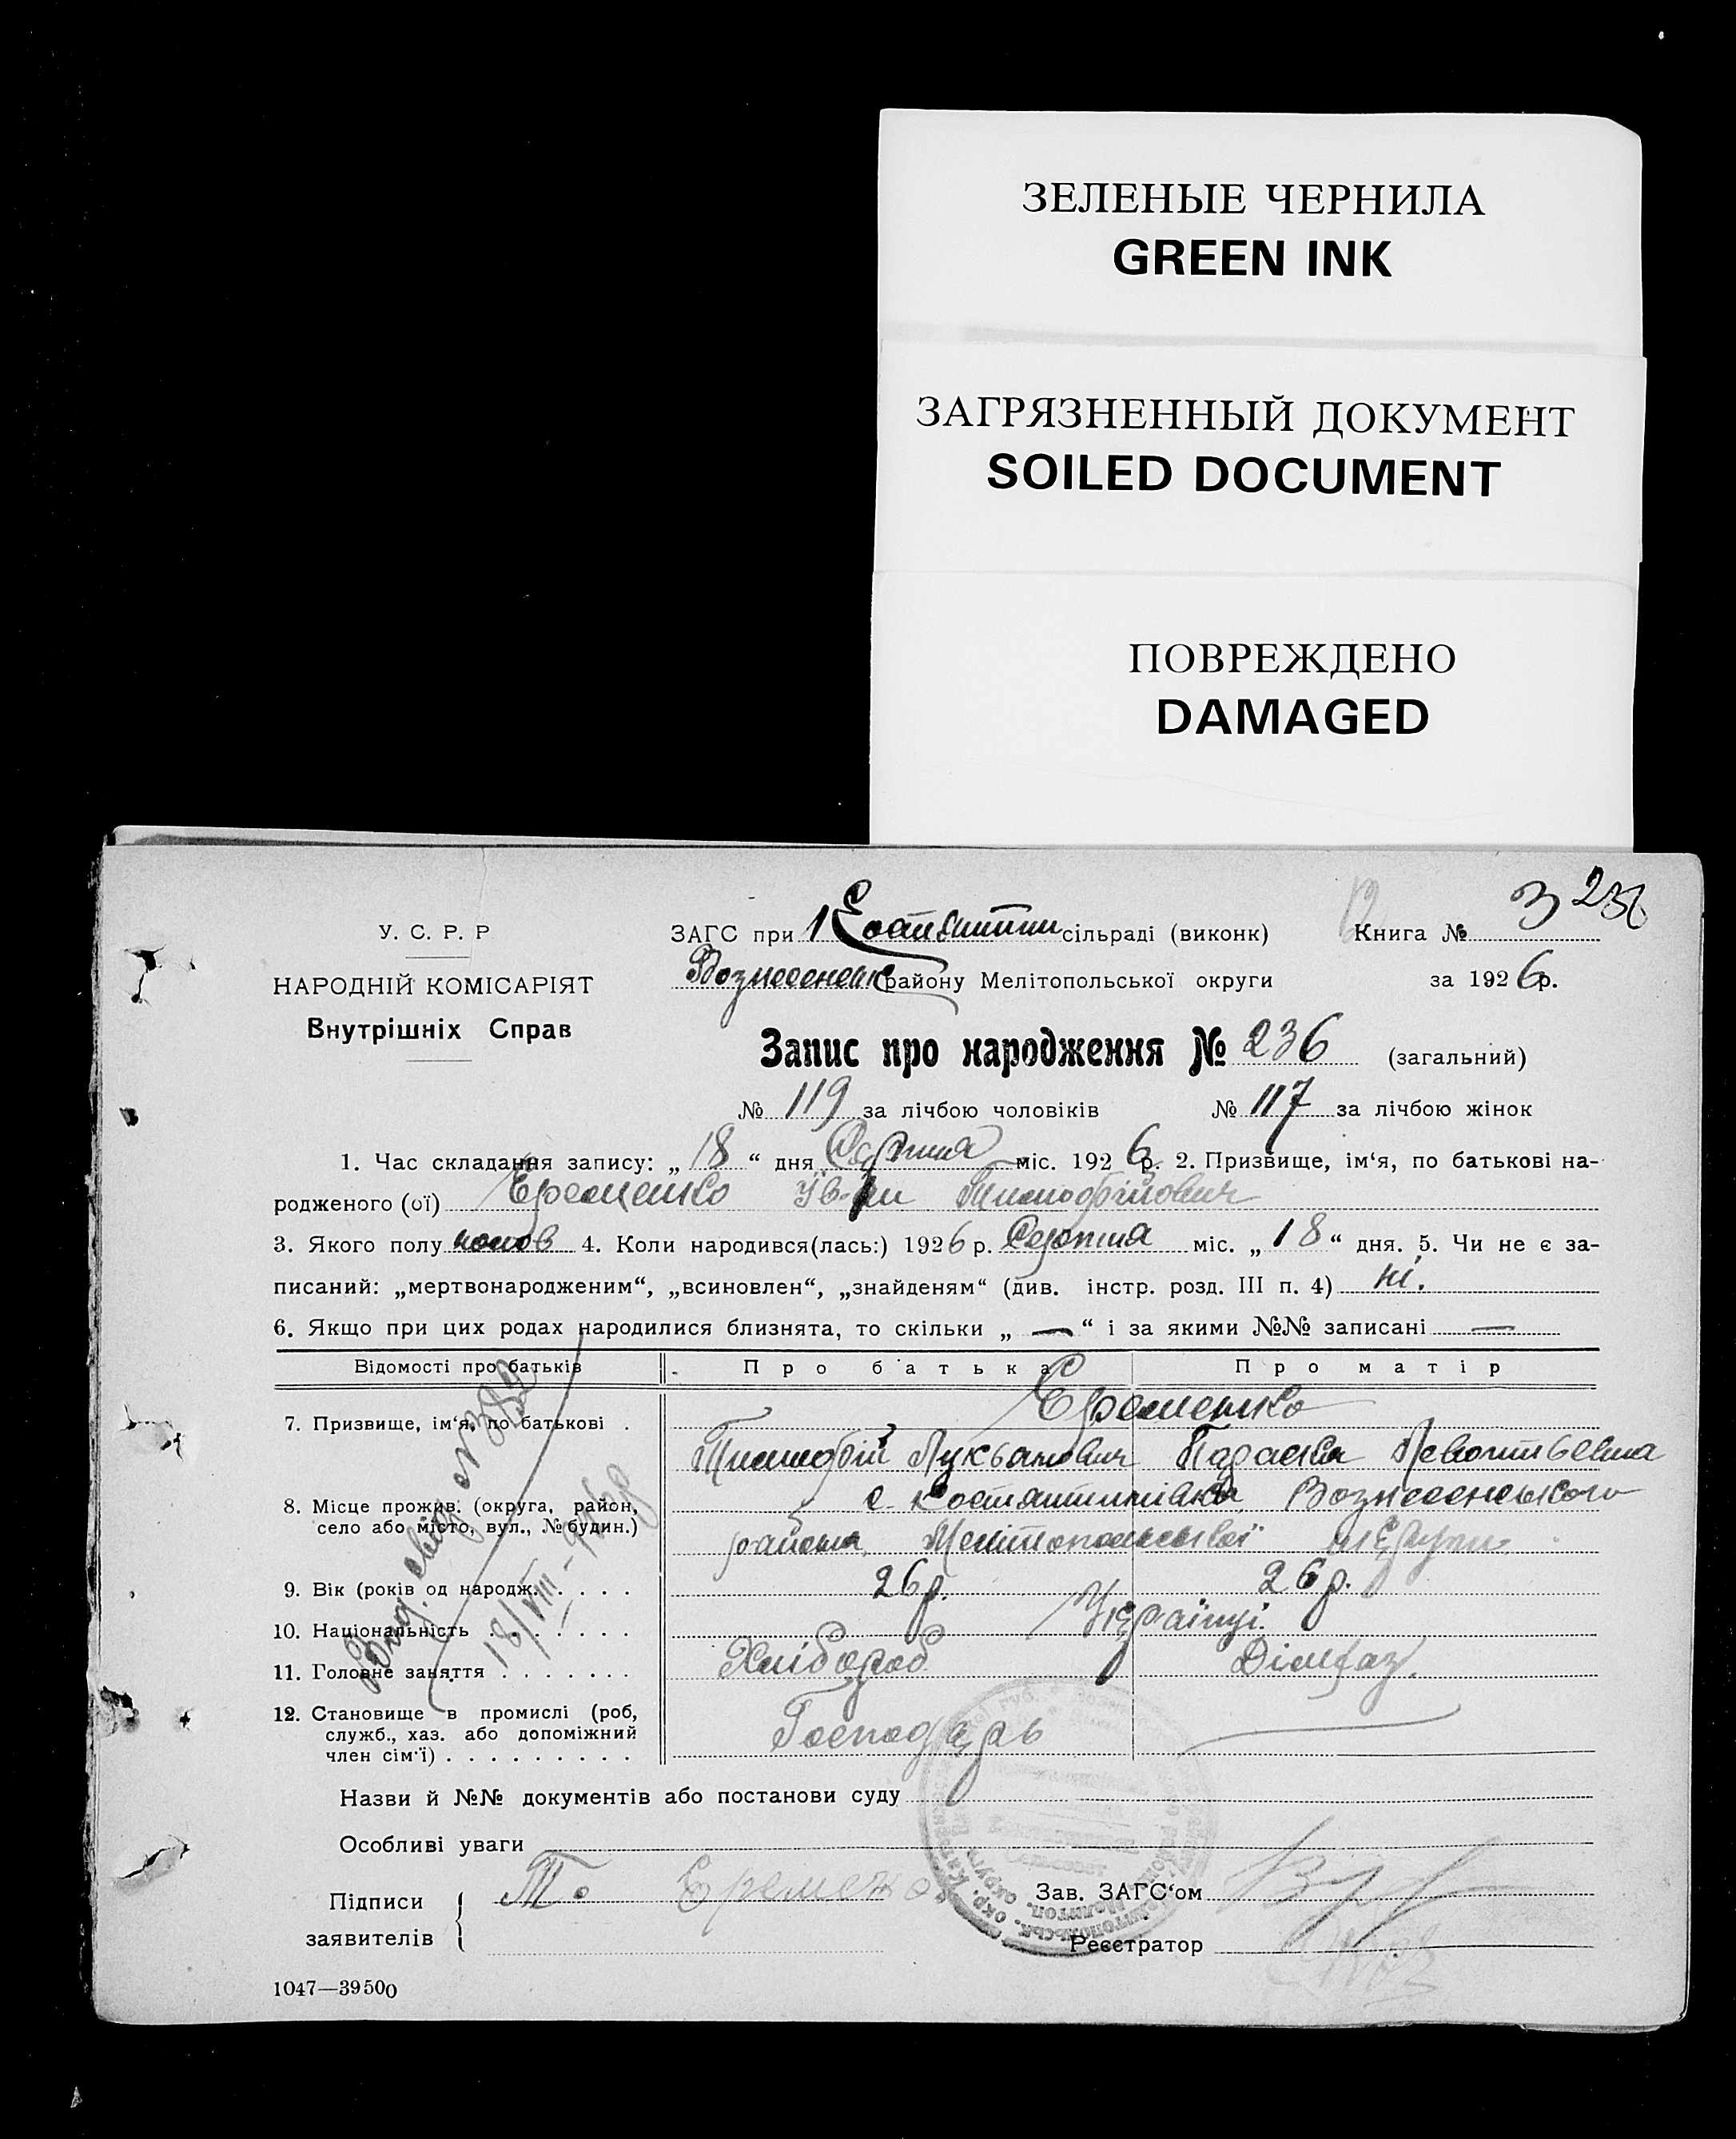 ЗЕЛЕНЫЕ ЧЕРНИЛА
GREEN INK
ЗАГРЯЗНЕННЫЙ ДОКУМЕНТ
SOILED DOCUMENT
ПОВРЕЖДЕНО
DAMAGED
236
У. С. Р. Р
НАРОДНІЙ КОМІСАРІЯТ
Внутрішніх Справ
ЗАГС при 1 Костянтин сільраді (виконк)
Книга № 3
Вознесенськ району Мелітопольської округи
за 1926 р.
Запис про народження № 236 (загальний)
№ 119 за лічбою чоловіків № 117 за лічбою жінок
1. Час складання запису: „ 18 “ дня Серпня міс. 1926 р. 2. Призвище, ім‘я, по батькові на-
родженого (ої) Еременко Іван Тимофійович
3. Якого полу чолов 4. Коли народився(лась:) 1926 р. Серпня міс. „ 18 “ дня. 5. Чи не є за-
писаний: „мертвонародженим“, „всиновлен“, „знайденям“ (див. інстр. розд. III п. 4) ні.
6. Якщо при цих родах народилися близнята, то скільки „ — “ і за якими №№ записані —
Відомості про батьків Про батька Про матір
7. Призвище, ім‘я, по батькові . Еременко
Тимофій Лукьянович Параска Левонтьевна
8. Місце прожив. (округа, район,
село або місто, вул., № будин.)
с. Костянтинівка Вознесенського
района, Мелітопольської округи.
9. Вік (років од народж. . . . . . 26 р. 26 р.
10. Національність . . . . . . Українці.
11. Головне заняття . . . . . . . Хлібороб Домгаз.
12. Становище в промислі (роб,
служб., хаз. або допоміжний
член сім‘ї) . . . . . . . . . Господарь
Вид. свид. № 382
18/VIII-
Назви й №№ документів або постанови суду
Особливі уваги
Підписи
заявителів
Т. Еременко
Зав. ЗАГС‘ом
Реєстратор
1047—39500